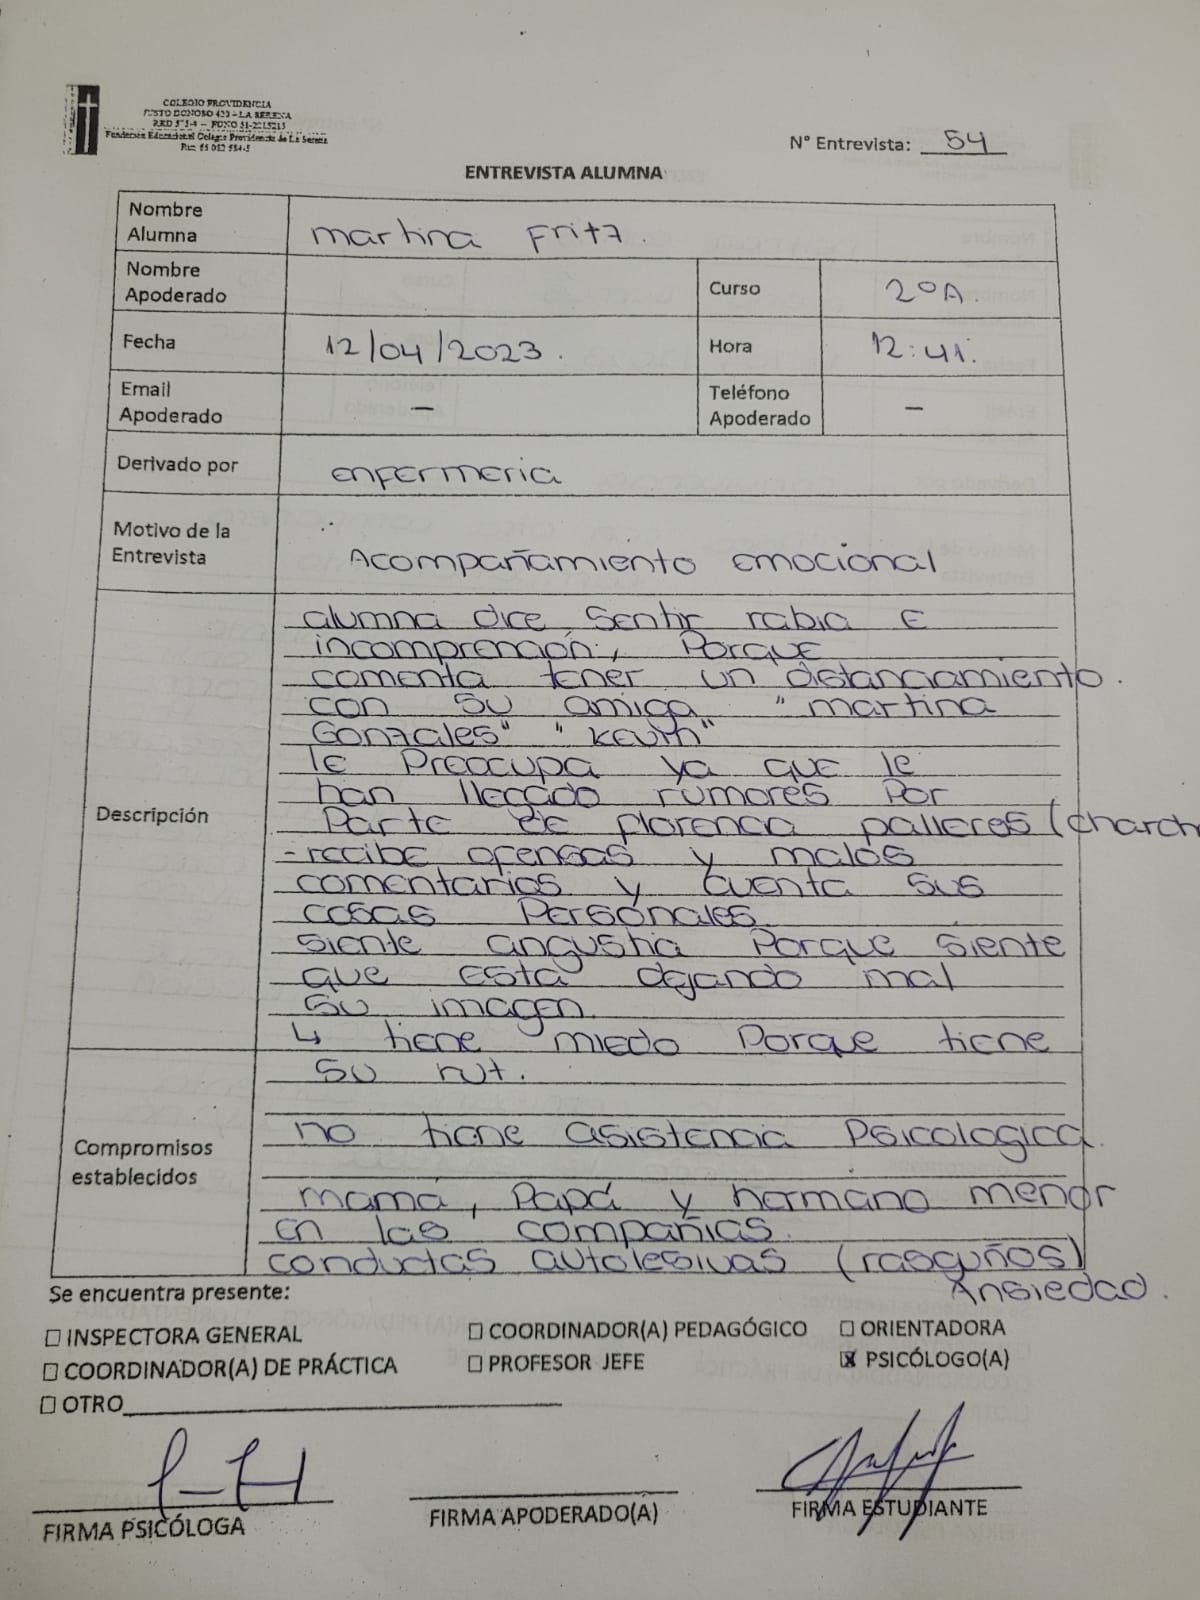 COLEGIO PROVIDENCIA
JUSTO DONOSO 420 - LA SERENA
Fundación Educacional Colegio Providencia de La Serena
N° Entrevista: 54
ENTREVISTA ALUMNA
Nombre Alumna martina Fritz.
Nombre Apoderado Curso 2°A.
Fecha 12/04/2023. Hora 12:41.
Email Apoderado - Teléfono Apoderado -
Derivado por enfermeria
Motivo de la Entrevista Acompañamiento emocional
Descripción
alumna dice, sentir rabia e
incomprención, Porque
comenta tener un distanciamiento.
con su amiga "martina
Gonzales" "Kevin"
le Preocupa ya que le
han llegado rumores Por
Parte de florencia palleres (charch
-recibe ofensas y malos
comentarios y cuenta sus
cosas Personales.
siente angustia Porque siente
que esta dejando mal
su imagen.
↳ tiene miedo Porque tiene
su rut.
Compromisos establecidos
no tiene asistencia Psicologica.
mamá, Papá y hermano menor
en las compañias.
conductas autolesivas (rasguños)
Ansiedad.
Se encuentra presente:
☐ INSPECTORA GENERAL ☐ COORDINADOR(A) PEDAGÓGICO ☐ ORIENTADORA
☐ COORDINADOR(A) DE PRÁCTICA ☐ PROFESOR JEFE ☒ PSICÓLOGO(A)
☐ OTRO
FIRMA PSICÓLOGA FIRMA APODERADO(A) FIRMA ESTUDIANTE